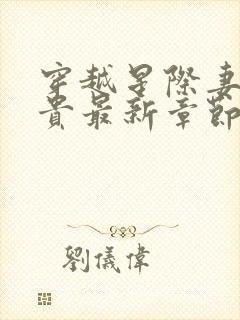 穿越星際妻
貴最新章節
劉儀偉